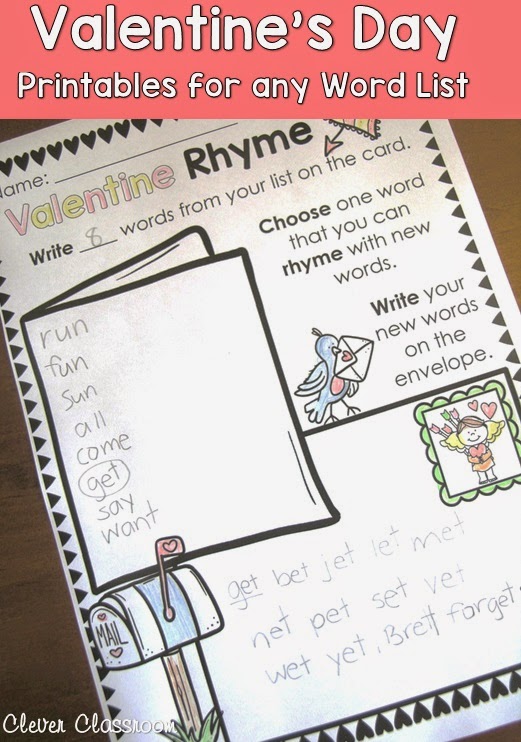 Valentine's Day
Printables for any Word List
Name:
Valentine Rhyme
Write 8 words from your list on the card.
Choose one word
that you can
rhyme with new
words.
Write your
new words
on the
envelope.
run
fun
sun
all
come
get
say
want
MAIL
get bet jet let met
net pet set vet
wet yet, Brett forget
Clever Classroom